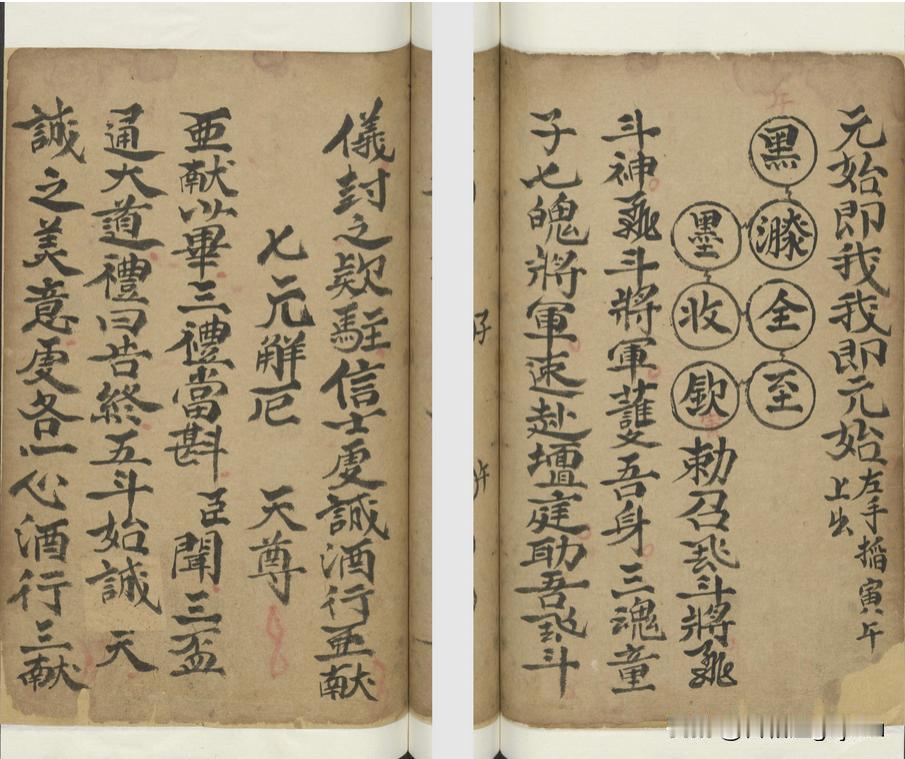 元始即我我即元始 左手搯寅午
上出
黑 滕 全 至
墨 收 欽 勅召飛斗將飛
斗神飛斗將軍護吾身三魂童
子七魄將軍速赴壇庭助吾飛斗
儀封之欵駐信士虔誠酒行亜献
七元解厄 天尊
亜献以畢三禮當斟 臣聞三盃
通大道禮曰告終五斗始誠 天
誠之美意虔各一心酒行三献